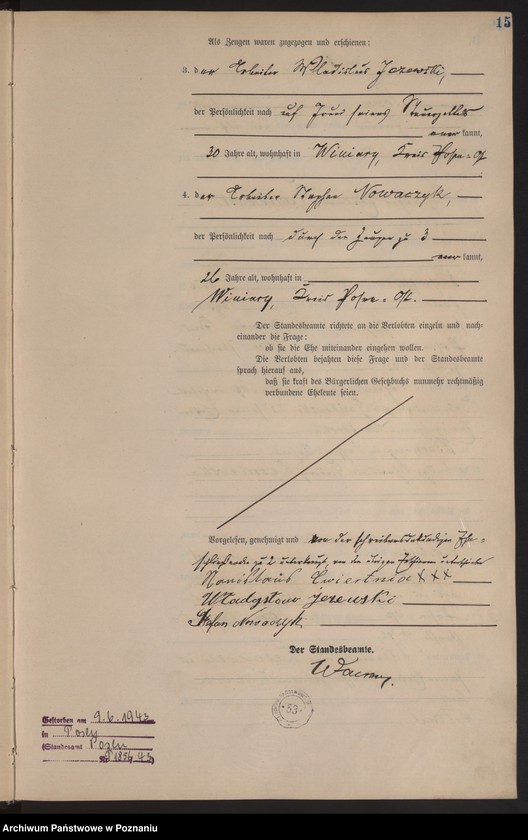 15
Als Zeugen waren zugezogen und erschienen:
3. der Arbeiter Wladislus Jezewski,
der Persönlichkeit nach auf Grund seines
kannt,
30 Jahre alt, wohnhaft in Winiary, Kreis Posen=Ost
4. der Arbeiter Stephan Nowaczyk,
der Persönlichkeit nach durch den Zeugen zu 3
kannt,
26 Jahre alt, wohnhaft in
Winiary, Kreis Posen=Ost.
Der Standesbeamte richtete an die Verlobten einzeln und nach-
einander die Frage:
ob sie die Ehe miteinander eingehen wollen.
Die Verlobten bejahten diese Frage und der Standesbeamte
sprach hierauf aus,
daß sie kraft des Bürgerlichen Gesetzbuchs nunmehr rechtmäßig
verbundene Eheleute seien.
Vorgelesen, genehmigt und von der schreibensunkundigen Ehe=
schließenden zu 2 unterkreuzt, von den übrigen unterschrieben
Stanislaus Cwiertnia XXX
Władysław Jezewski
Stefan Nowaczyk
Der Standesbeamte.
53
Gestorben am 9.6.1943
in Posen
(Standesamt Posen
Nr. 1856/43)
Archiwum Państwowe w Poznaniu